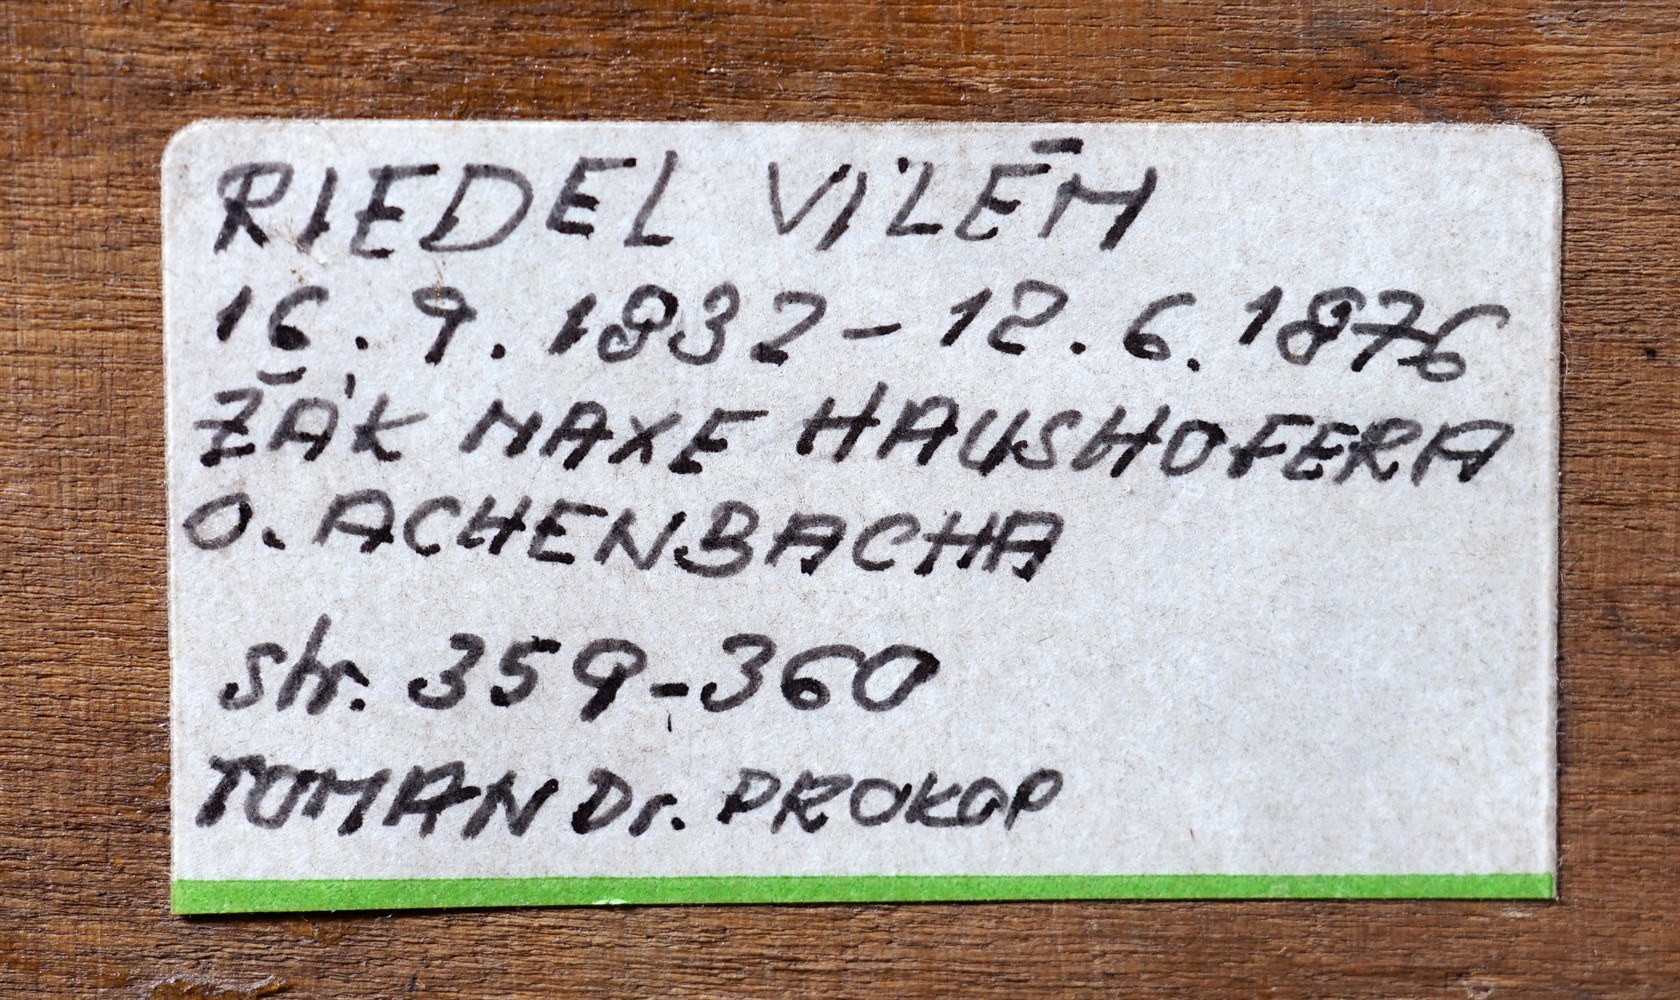 RIEDEL VILÉM
16. 9. 1832 - 12. 6. 1876
ŽÁK MAXE HAUSHOFERA
O. ACHENBACHA
str. 359-360
TOMAN Dr. PROKOP